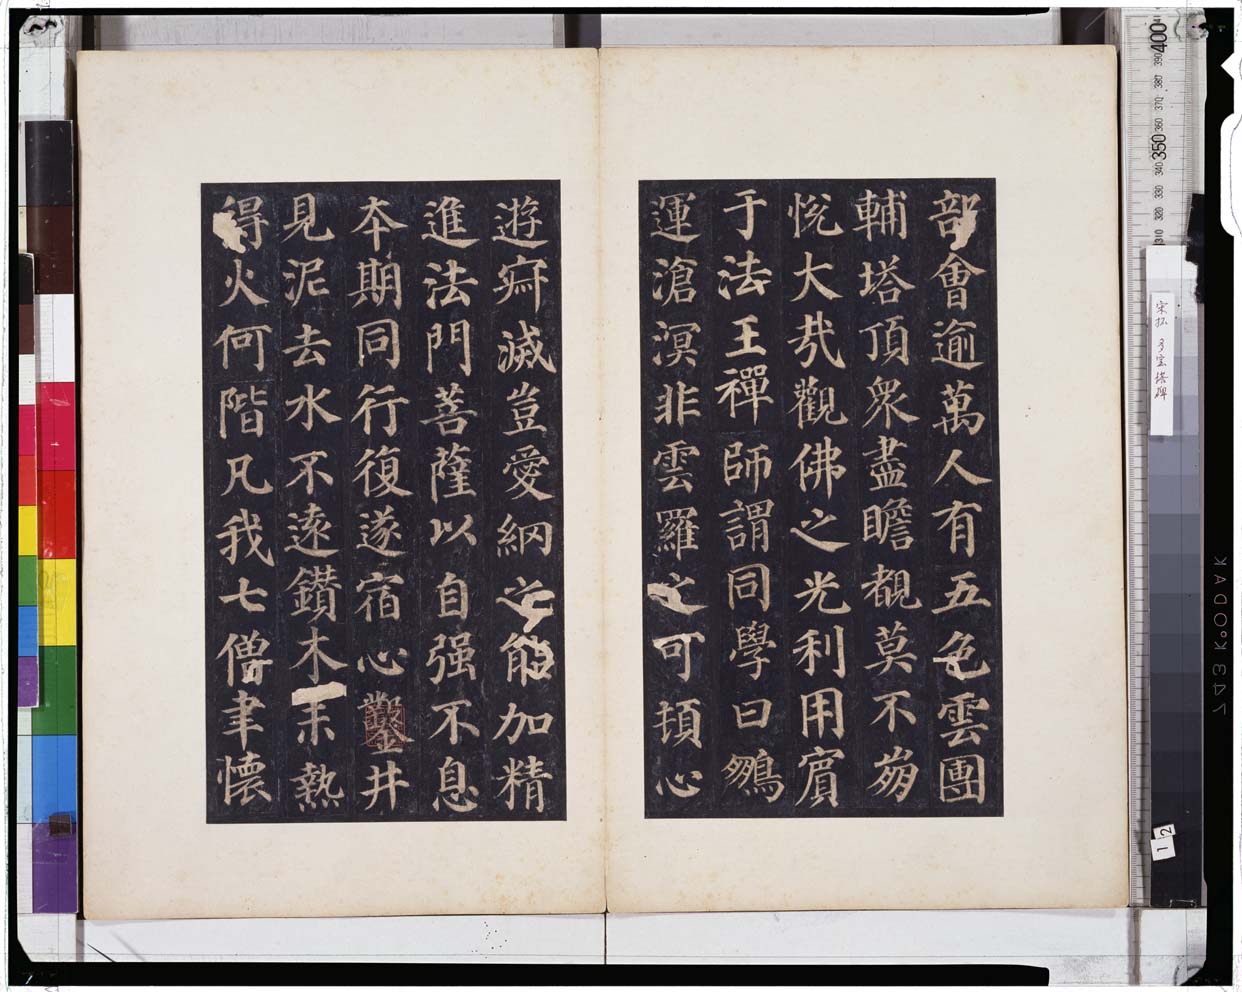 部會逾萬人有五色雲團
輔塔頂衆盡瞻覩莫不崩
悅大哉觀佛之光利用賓
于法王禪師謂同學曰鵬
運滄溟非雲羅之可頓心
遊寂滅豈愛網之能加精
進法門菩薩以自强不息
本期同行復遂宿心鑿井
見泥去水不遠鑽木未熱
得火何階凡我七僧聿懷
宋拓 多宝塔碑
12
KODAK
400
390
380
370
360
350
340
330
320
310